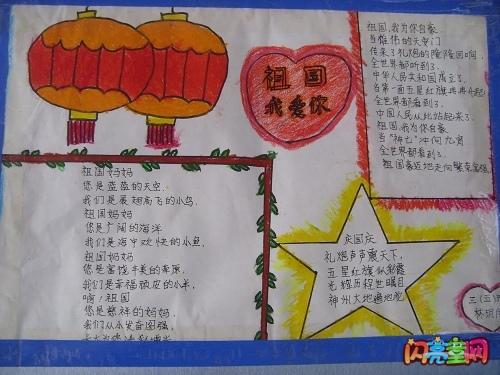 祖国
我爱你
祖国,我为你自豪
当雄伟的天安门
传来了礼炮的隆隆回响,
全世界都听到了.
中华人民共和国成立了.
当第一面五星红旗冉冉升起
全世界都看到了.
中国人民从此站起来了.
祖国,我为你自豪
当"神七"冲向九霄
全世界都看到了.
祖国妈妈
您是蓝蓝的天空.
我们是展翅高飞的小鸟.
祖国妈妈
您是广阔的海洋
我们是海中欢快的小鱼.
祖国妈妈
您是富饶丰美的草原.
我们是幸福顽皮的小羊.
啊!祖国
您是慈祥的妈妈.
我们从小发奋图强.
庆国庆
礼炮声声震天下,
五星红旗似彩霞
光辉历程世瞩目
神州大地遍地花
三(五)
林
闪亮童网